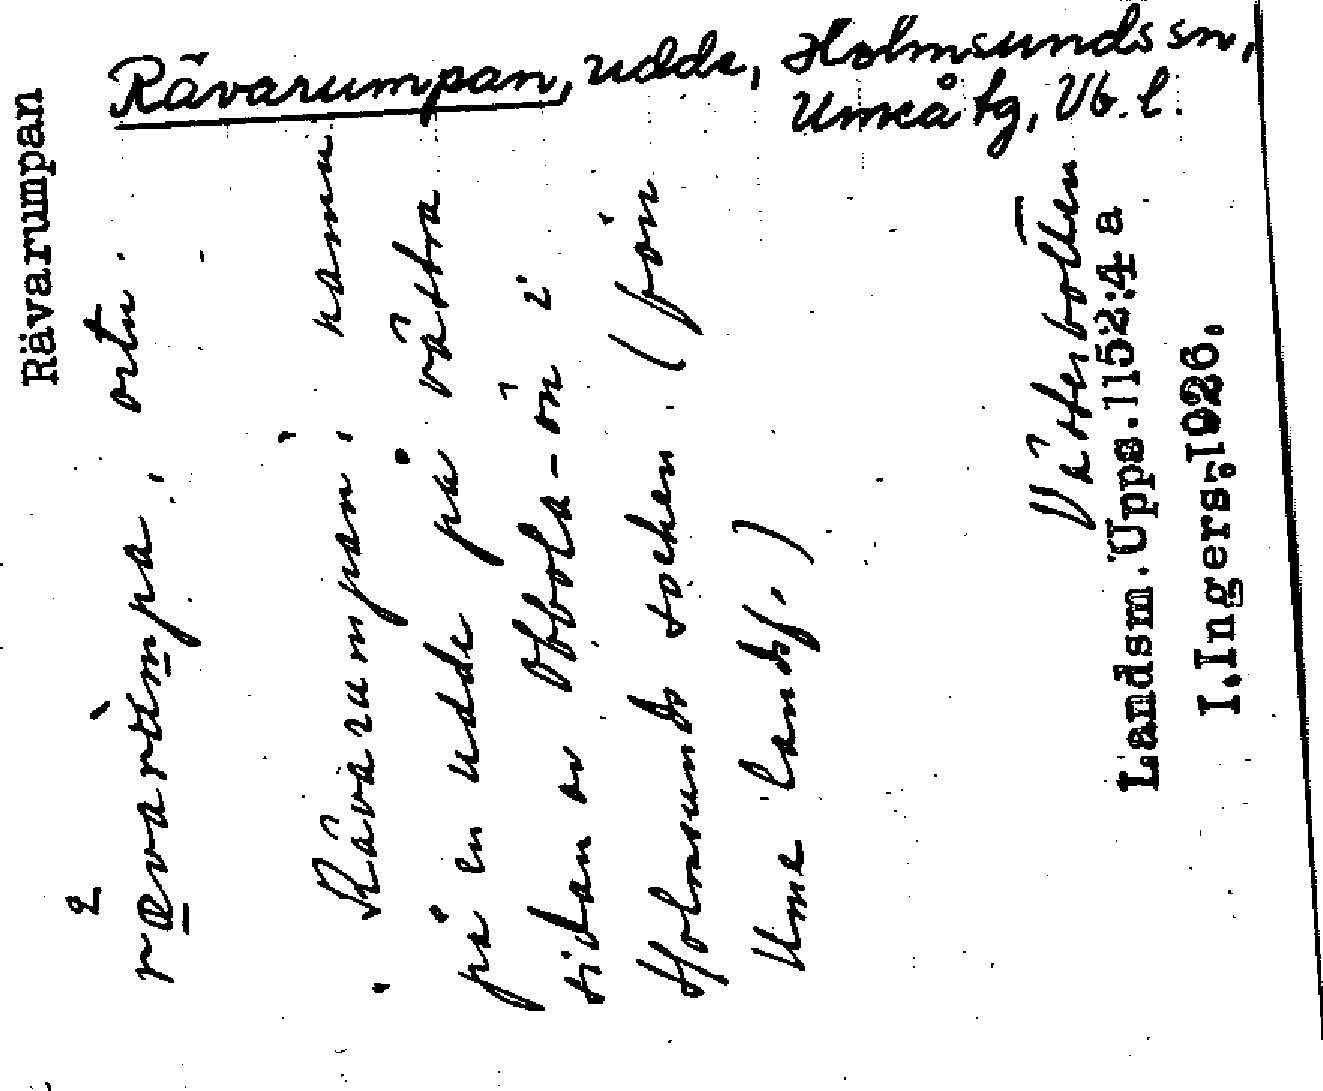 Rävarumpan, udde, Holmsunds sn,
Umeå tg, Vb. l.
Rävarumpan
rævarumpa, ortn.
"Rävarumpan", namn
på en udde på västra
sidan av Obbola-ön i
Holmsunds socken (från
Ume landsf.)
Västerbotten
Landsm. Upps. 1152:4 a
I. Ingers, 1926.